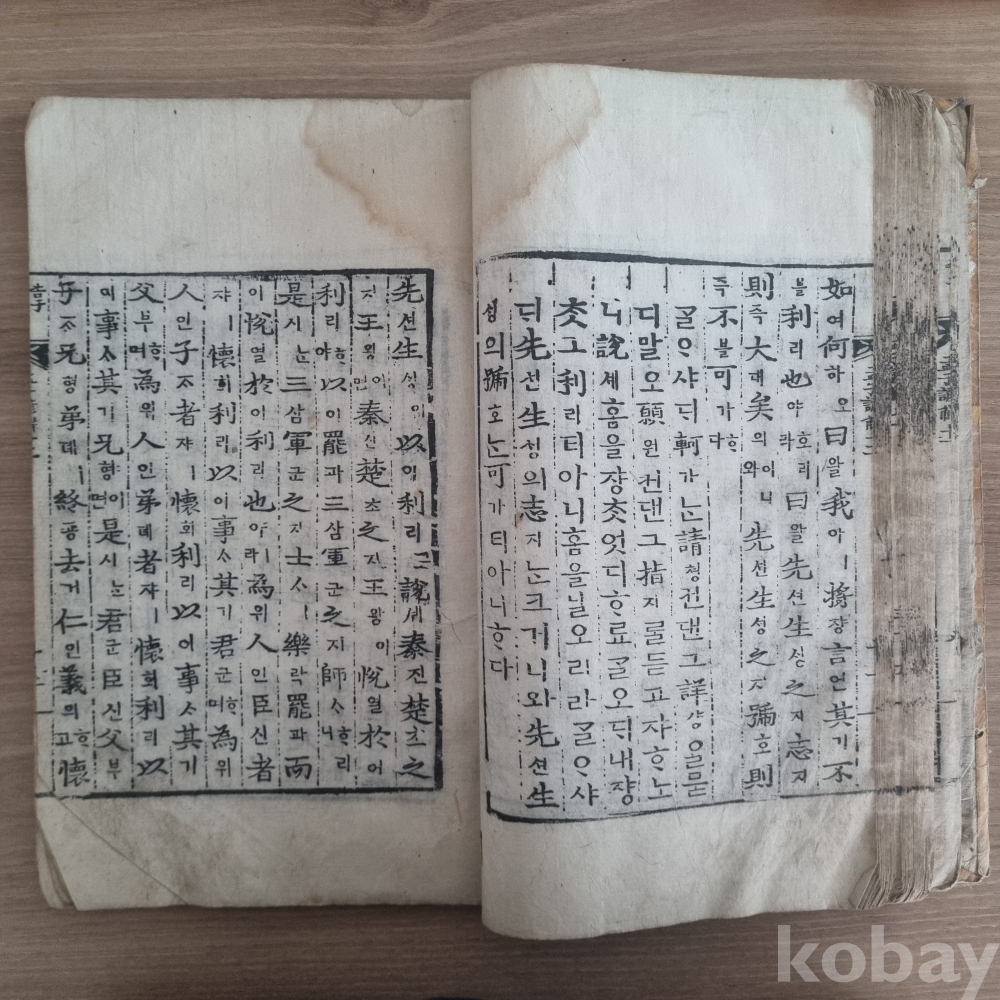 如여何하오曰왈我아ㅣ將쟝言언其기不
블利리也야호리라曰왈先션生셩之지志지
則즉大대矣의어니와先션生셩之지號호則
즉不블可가ᄒᆞ다
ᄀᆞᆯᄋᆞ샤ᄃᆡ軻가ᄂᆞᆫ請쳥컨댄그詳샹으란묻
디말오願원컨댄그指지ᄅᆞᆯ듣고쟈ᄒᆞ노
니說셰홈을쟝ᄎᆞᆺ엇디ᄒᆞ료ᄀᆞᆯ오ᄃᆡ내쟝
ᄎᆞᆺ그利리티아니홈을닐오리라ᄀᆞᆯᄋᆞ샤
ᄃᆡ先션生셩의志지ᄂᆞᆫ크거니와先션生
셩의號호ᄂᆞᆫ可가티아니ᄒᆞ다
先션生셩이以이利리로說셰秦진楚초之
지王왕이면秦진楚초之지王왕이悅열於어
利리ᄒᆞ야以이罷파三삼軍군之지師ᄉᆞᄒᆞ리니
是시ᄂᆞᆫ三삼軍군之지士ᄉᆞㅣ樂락罷파而
이悅열於어利리也야ㅣ라爲위人인臣신者
쟈ㅣ懷회利리以이事ᄉᆞ其기君군ᄒᆞ며爲위
人인子ᄌᆞ者쟈ㅣ懷회利리以이事ᄉᆞ其기
父부ᄒᆞ며爲위人인弟뎨者쟈ㅣ懷회利리以
이事ᄉᆞ其기兄형이면是시ᄂᆞᆫ君군臣신父부
子ᄌᆞ兄형弟뎨ㅣ終죵去거仁인義의ᄒᆞ고懷
kobay